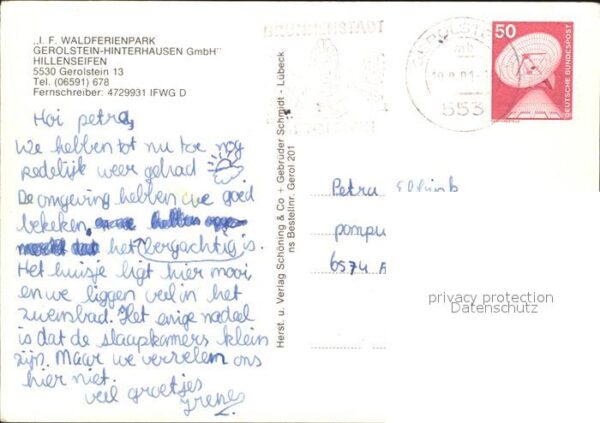 „I. F. WALDFERIENPARK
GEROLSTEIN-HINTERHAUSEN GmbH"
HILLENSEIFEN
5530 Gerolstein 13
Tel. (06591) 678
Fernschreiber: 4729931 IFWG D
Hoi petra,
We hebben tot nu toe nog
redelijk weer gehad
De omgeving hebben we goed
bekeken,
het bergachtig is.
Het huisje ligt hier mooi
en we liggen veel in het
zwembad. Het enige nadeel
is dat de slaapkamers klein
zijn. Maar we vervelen ons
hier niet.
veel groetjes
Irene
Herst. u. Verlag Schöning & Co + Gebrüder Schmidt - Lübeck
ns Bestellnr. Gerol 201
GEROLSTEIN
553
50
DEUTSCHE BUNDESPOST
Petra
pompu
6574 A
privacy protection
Datenschutz